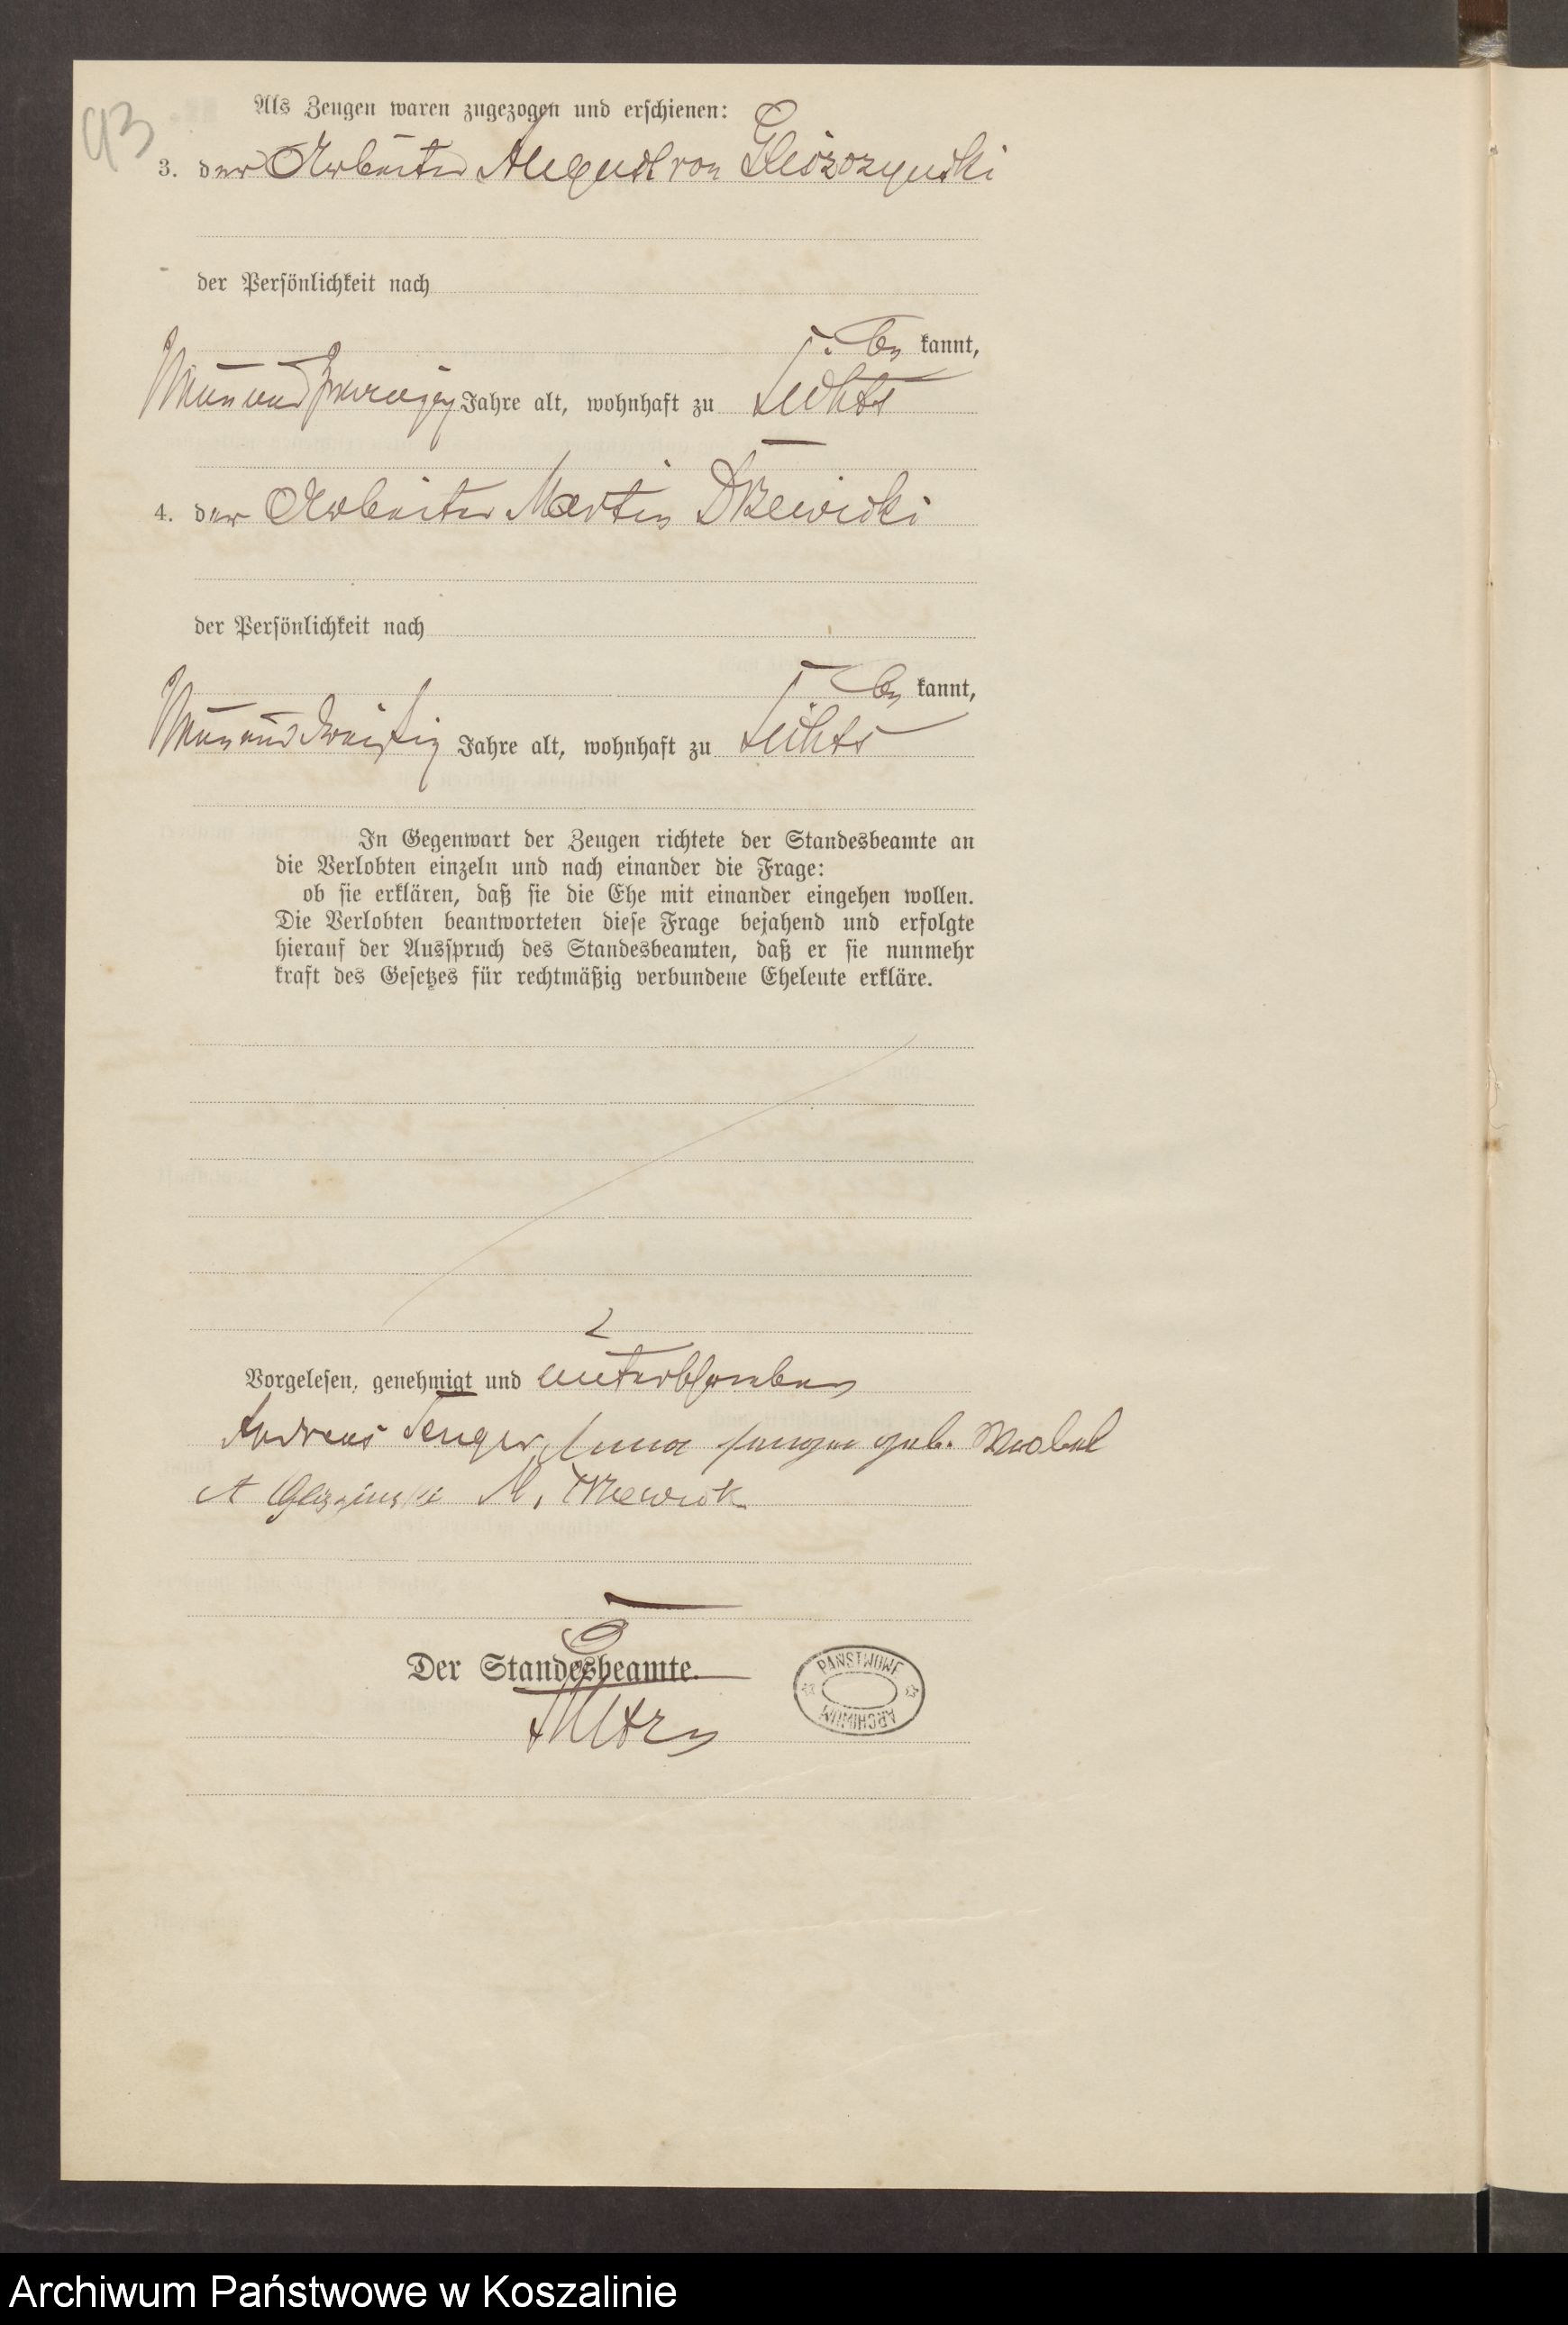 93
Als Zeugen waren zugezogen und erschienen:
3. der Arbeiter von
der Persönlichkeit nach
be kannt,
Neunundzwanzig Jahre alt, wohnhaft zu
4. der Arbeiter Martin
der Persönlichkeit nach
be kannt,
Jahre alt, wohnhaft zu
In Gegenwart der Zeugen richtete der Standesbeamte an
die Verlobten einzeln und nach einander die Frage:
ob sie erklären, daß sie die Ehe mit einander eingehen wollen.
Die Verlobten beantworteten diese Frage bejahend und erfolgte
hierauf der Ausspruch des Standesbeamten, daß er sie nunmehr
kraft des Gesetzes für rechtmäßig verbundene Eheleute erkläre.
Vorgelesen, genehmigt und unterschrieben
Andreas Senger, Anna Senger geb.
A M.
Der Standesbeamte.
PAŃSTWOWE
ARCHIWUM
Archiwum Państwowe w Koszalinie